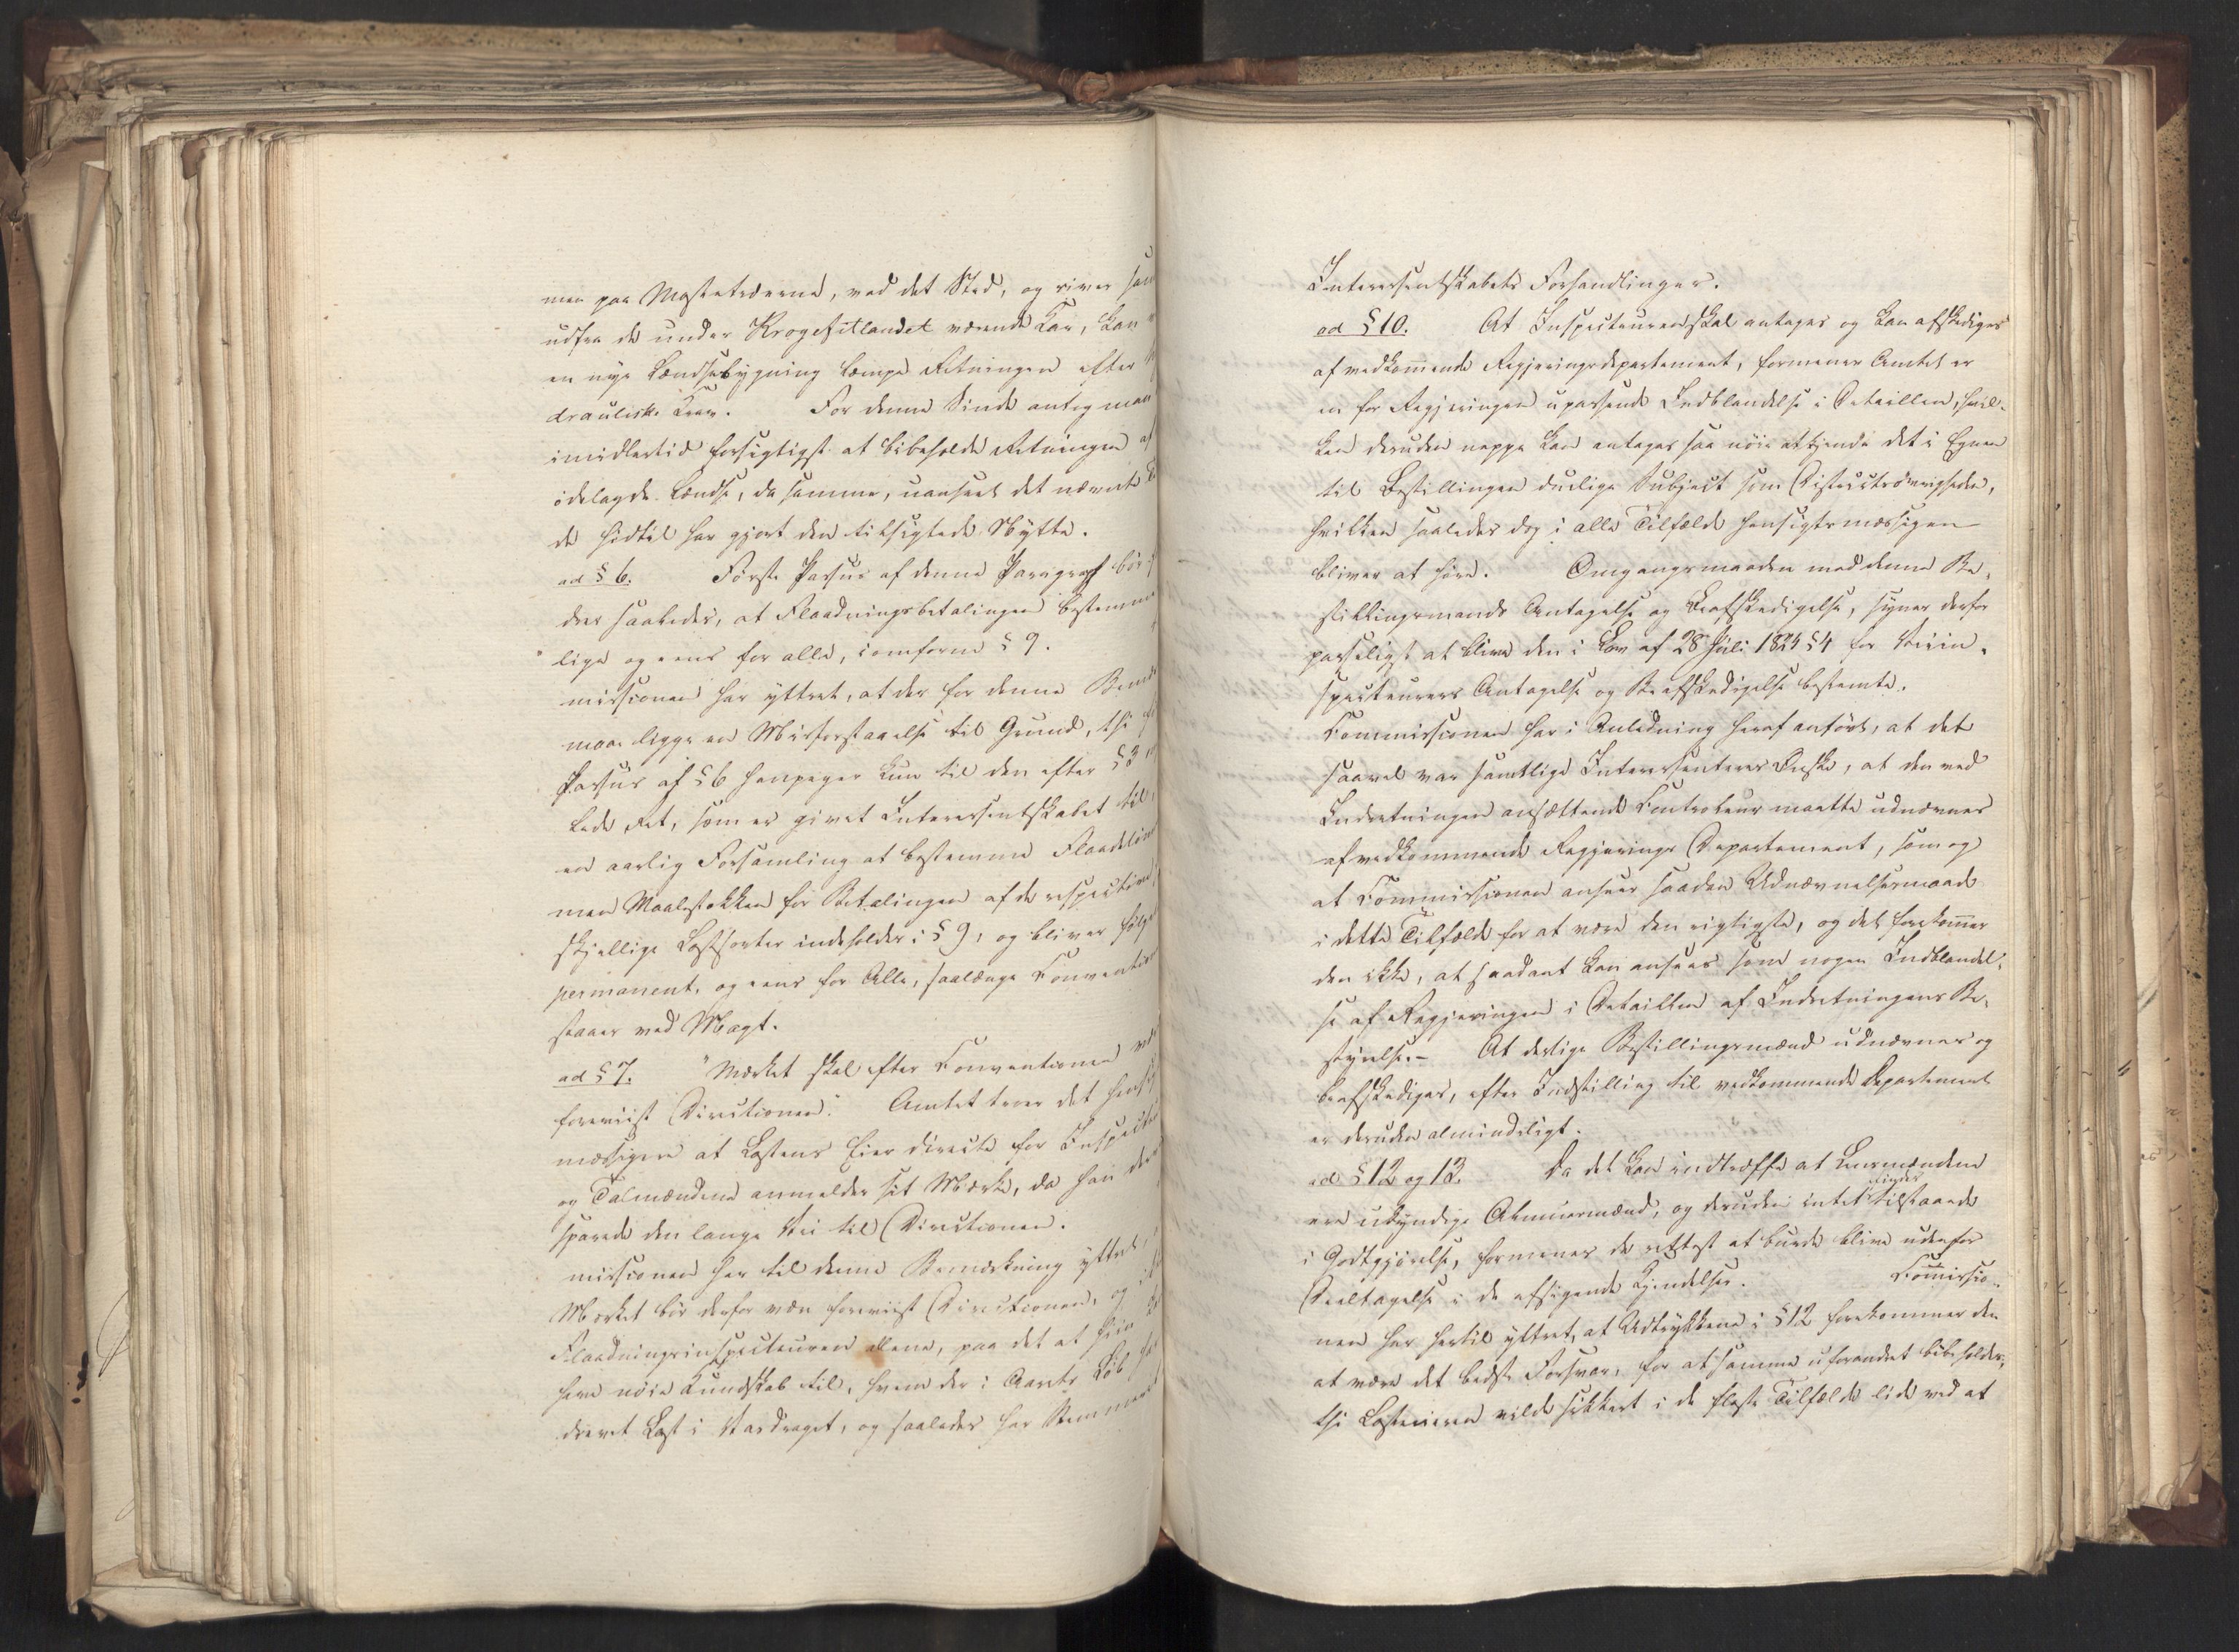 men paa Mastetræerne, med det Sted, og river
udfra de under Krogefitlandet værende Kar, kan
en nye Lændsebygning lempe Retningen efter
drauliske Krav. For denne Sinde antog man
imidlertid forsigtigst at bibeholde Retningen af
ødelagde Lændse, da samme, uanseet det nævnte
de hidtil har gjort den tilsigtede Nytte.
ad § 6. Første Passus af denne Paragraf bør
dres saaledes, at Flaadningsbetalingen bestemmes
lige og eens for alle, conform § 9.
missionen har yttret, at der for denne
maae ligge en Misforstaaelse til Grund, thi
Passus af § 6 henpeger kun til den efter § 3
lede Ret, som er givet Interessentskabet til
en aarlig Forsamling at bestemme
men Maalestokken for Betalingen af de respective
skjellige Lastsorter indeholdes i § 9, og bliver
permanent, og eens for Alle, saalænge Convention
staaer ved Magt.
ad § 7. "Mærket skal efter Conventionen
foreviist Directionen." Amtet troer det
mæssigere at Lastens Eier directe for
og Talmændene anmelder sit Mærke, da han
sparede den lange Vei til Directionen.
missionen har til denne Bemærkning yttret,
Mærket bør derfor være foreviist Directionen, og
Flaadningsinspecteuren allene, paa det at
have nøie Kundskab til, hvem der i Aarets Løb
drevet Last i Vasdraget, og saaledes har
Interessentskabets Forhandlinger.
ad § 10. At Inspecteuren skal antages og kan afskediges
af vedkommende Regjeringsdepartement, formener Amtet er
en for Regjeringen upassende Indblandelse i Detaillen, hvil-
ken desuden neppe kan antages saa nøie at kjende det i Egnen
til Bestillingen duelige Subject som Districtsøvrigheden,
hvilken saaledes dog i alle Tilfælde hensigtsmæssigen
bliver at høre. Omgangsmaaden med denne Be-
stillingsmands Antagelse og Beafskedigelse, synes derfor
passeligst at blive den i Lov af 28 Juli 1824 § 4 for Veiin-
specteurers Antagelse og Beafskedigelse bestemte.
Commissionen har i Anledning heraf anført, at det
saavel var samtlige Interessenteres Ønske, at den ved
Indretningen ansættende Controleur maatte udnævnes
af vedkommende Regjerings Departement, som og
at Commissionen anseer saadan Udnævnelsesmaade
i dette Tilfælde for at være den rigtigste, og det forekommer
den ikke, at saadant kan ansees som nogen Indblandel-
se af Regjeringen i Detaillen af Indretningens Be-
styrelse. – At deslige Bestillingsmænd udnævnes og
beafskediges, efter Indstilling til vedkommende Departement
er desuden almindeligt.
ad § 12 og 13. Da det kan indtræffe at Lensmændene
ere ukyndige Almuesmænd, og desuden intet finder tilstaaede
i Godtgjørelse, formenes de rettest at burde blive udenfor
Deeltagelse i de afsigende Kjendelser. Commissio-
nen har hertil yttret, at Udtrykkene i § 12 forekommer den
at være det bedste Forsvar, for at samme uforandret bibeholdes,
thi Lasteieren vilde sikkert i de fleste Tilfælde lide ved at